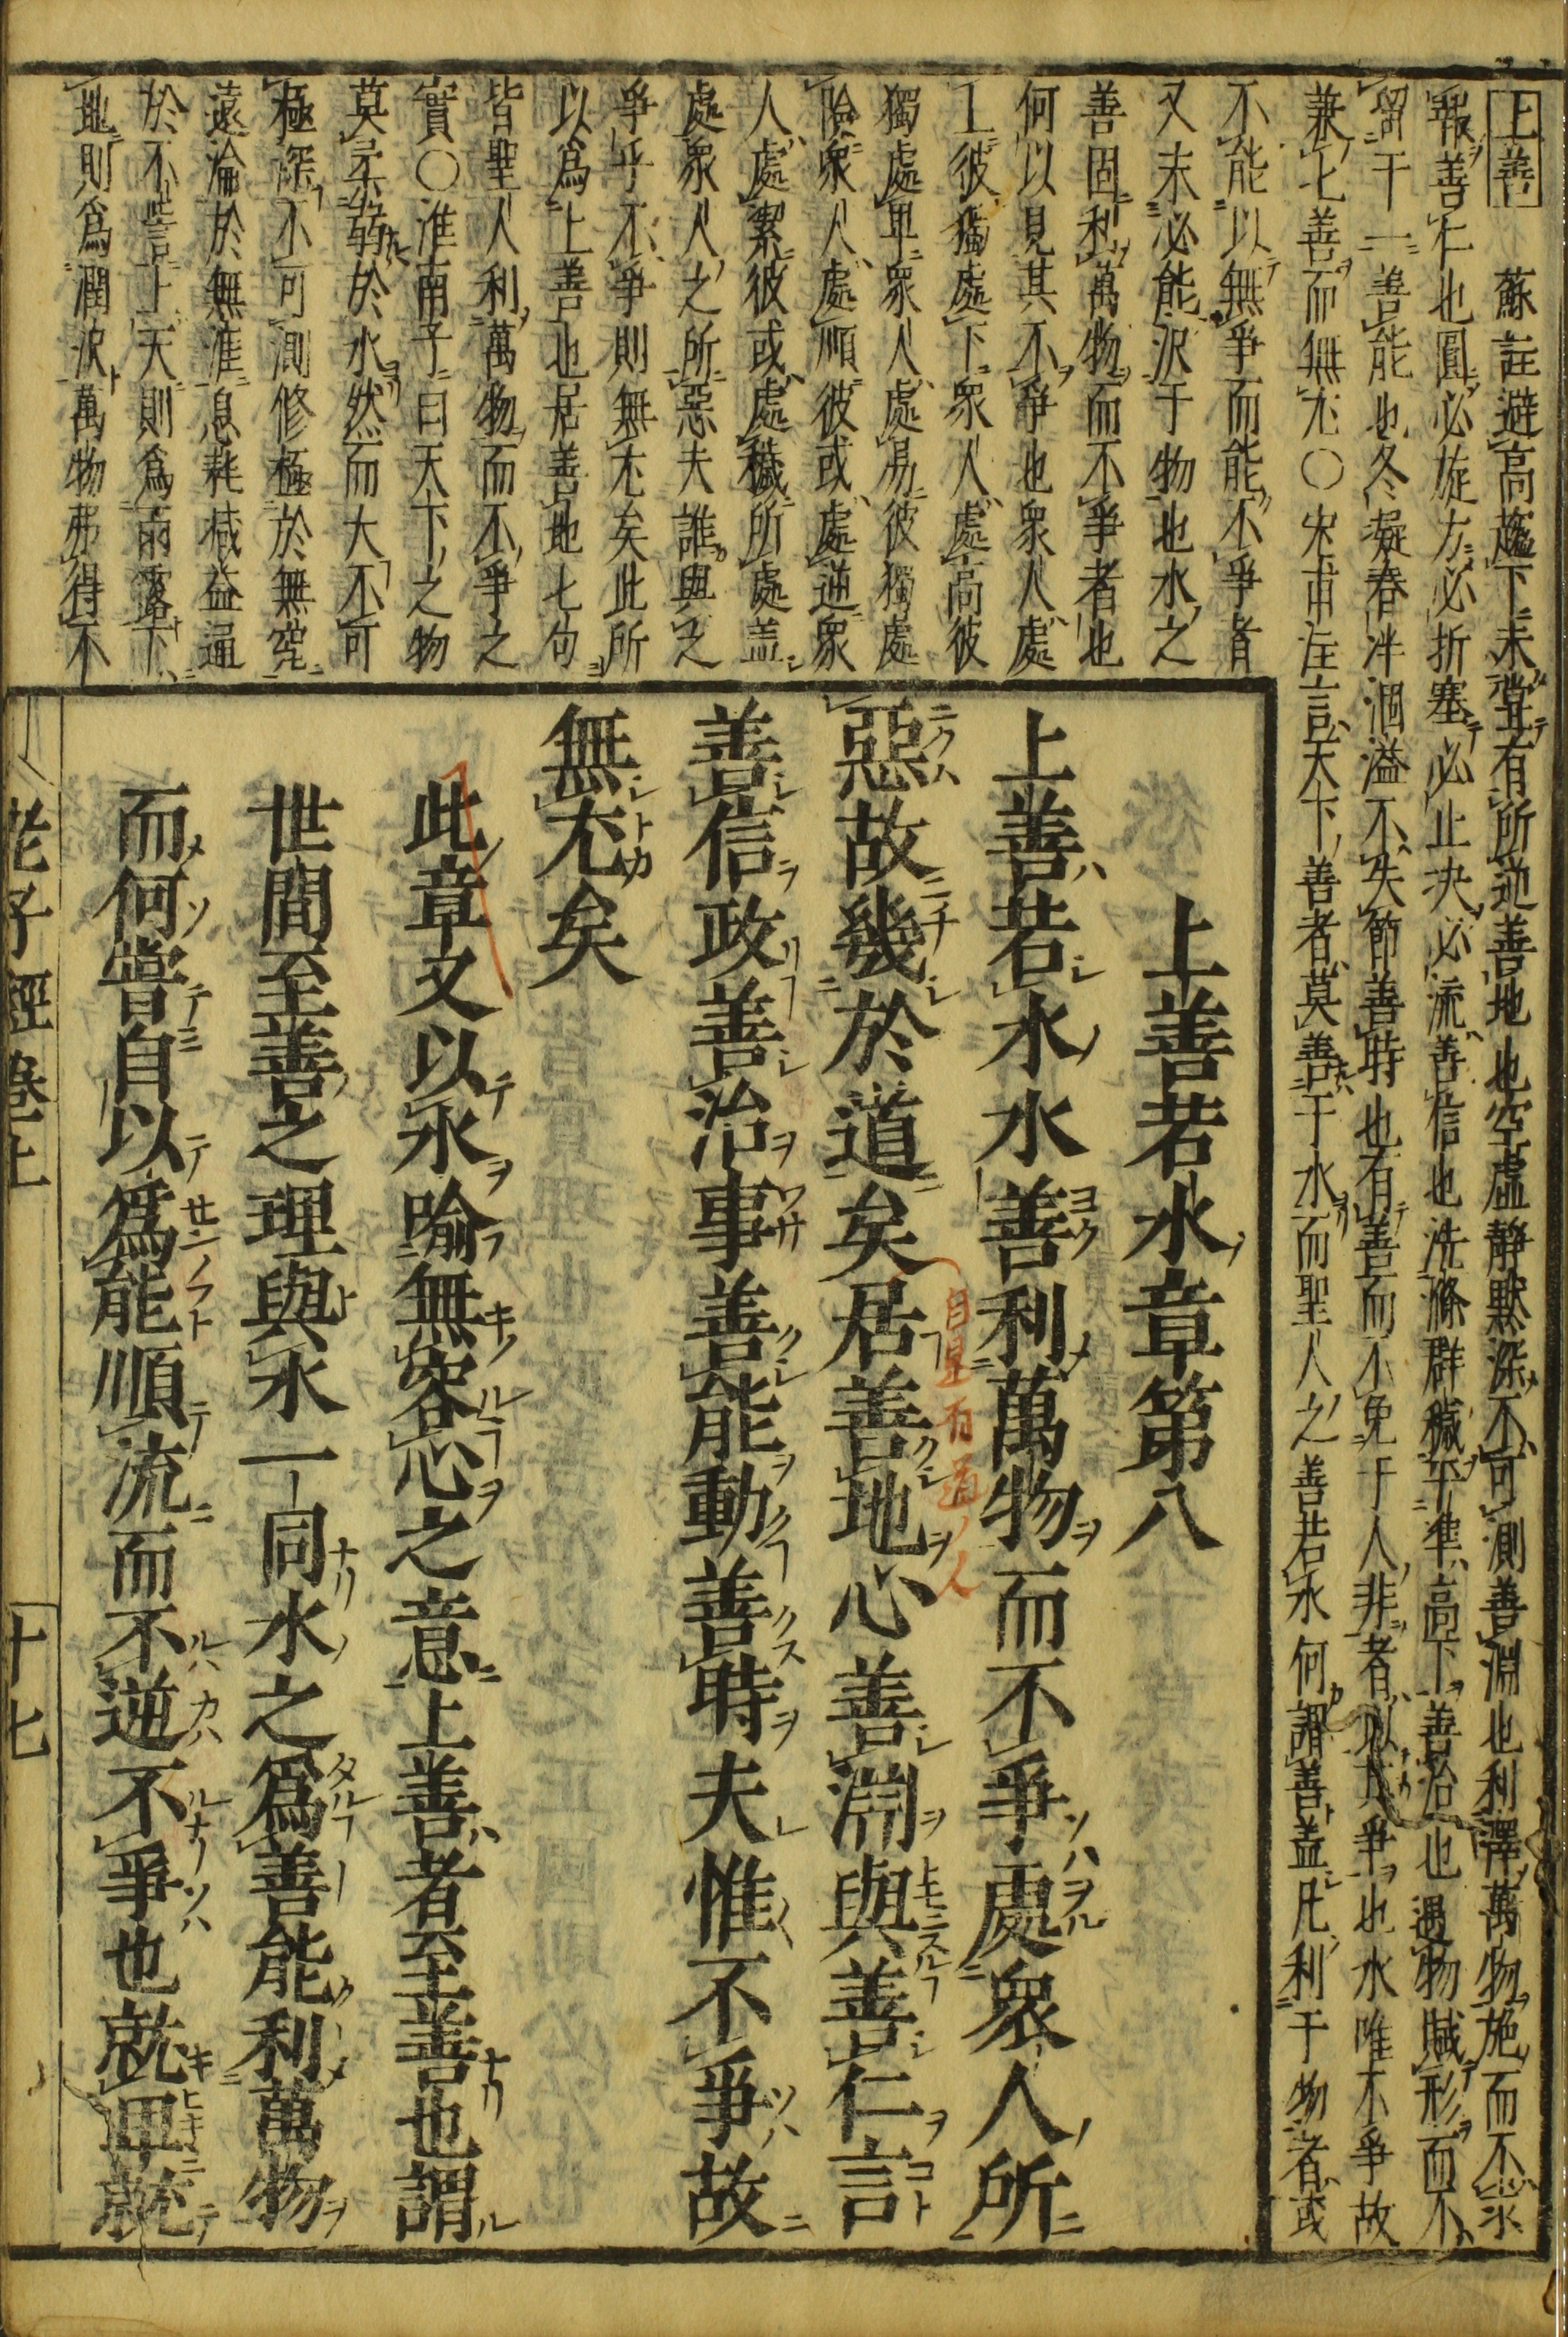 上善　蘇註避高趨下未嘗有所逆善地也空虛靜默深不可測善淵也利澤萬物施而不求
報善仁也圓必旋方必折塞必止决必流善信也洗滌群穢平準高下善治也遇物賦形而不
留于一善能也冬凝春泮涸溢不失節善時也有善而不免于人非者以其爭也水唯不爭故
兼七善而無尤○宋甫注言天下善者莫善于水而聖人之善若水何謂善盖凡利于物者或
不能以無爭而能不爭者
又未必能沢于物也水之
善固利萬物而不爭者也
何以見其不爭也衆人處
上彼獨處下衆人處高彼
獨處卑衆人處易彼獨處
險衆人處順彼或處逆衆
人處潔彼或處穢所處盖
處衆人之所惡夫誰與之
爭乎不爭則無尤矣此所
以爲上善也居善地七句
皆聖人利萬物而不爭之
實○淮南子曰天下之物
莫柔弱於水然而大不可
極深不可測修極於無窮
遠淪於無涯息耗减益通
於不訾上天則爲雨露下
地則爲潤沢萬物弗得不
上善若水章第八
上善若水水善利萬物而不爭處衆人所
惡故幾於道矣居善地心善淵與善仁言
善信政善治事善能動善時夫惟不爭故
無尤矣
此章文以水喩無容心之意上善者至善也謂
世間至善之理與水一同水之爲善能利萬物
而何嘗自以爲能順流而不逆不爭也就卑就
老子經卷上
十七